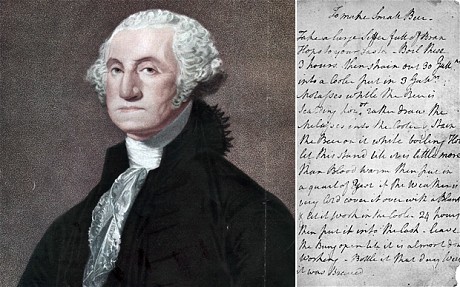 To make Small Beer
Take a large Siffer full of Bran
Hops to your Taste - Boil these
3 hours. then strain out 30 Gall.
into a Cooler put in 3 Gallns
Molasses while the Beer is
Scalding hot or rather draw the
Molasses into the Cooler & Strain
the Beer on it while boiling Hot
let this stand till it is little more
than Blood warm then put in
a quart of Yest if the weather is
very Cold cover it over with a Blank
& let it work in the Cooler 24 hours
then put it into the Cask - leave
the Bung open till it is almost done
working - Bottle it that day Week
it was Brewed